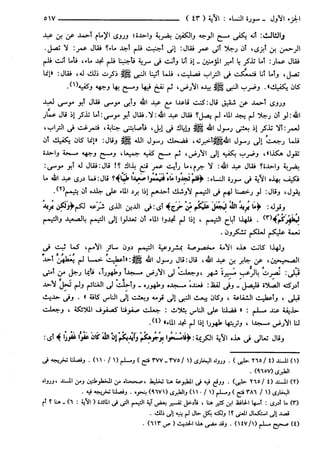 الجزء الأول - سورة النساء : الآية ( ٤٣ ) ٥١٧
والثالث : أنه يكفى مسح الوجه والكفين بضربة واحدة ؛ وروى الإمام أحمد عن عبد
الرحمن بن أبزى ، أن رجلا أتى عمر فقال : إنى أجنبت فلم أجد ماء ؟ فقال عمر : لا تصل .
فقال عمار : أما تذكر يا أمير المؤمنين - إذ أنا وأنت فى سرية فأجنبنا فلم نجد ماء ، فأما أنت فلم
تصل ، وأما أنا فتمعكت فى التراب فصليت ، فلما أتينا النبى ﷺ ذكرت ذلك له ، فقال : « إنما
كان يكفيك » . وضرب النبى ﷺ بيده الأرض ، ثم نفخ فيها ومسح بها وجهه وكفيه (١) .
وروى أحمد عن شقيق قال : كنت قاعدا مع عبد الله وأبى موسى فقال أبو موسى لعبد
الله : لو أن رجلا لم يجد الماء لم يصل ؟ فقال عبد الله : لا . فقال أبو موسى : أما تذكر إذ قال عمار
لعمر : ألا تذكر إذ بعثنى رسول الله ﷺ وإياك فى إبل ، فأصابتنى جنابة ، فتمرغت فى التراب ،
فلما رجعت إلى رسول الله ﷺ أخبرته ، فضحك رسول الله ﷺ وقال : « إنما كان يكفيك أن
تقول هكذا » ، وضرب بكفيه إلى الأرض ، ثم مسح كفيه جميعا ، ومسح وجهه مسحة واحدة
بضربة واحدة ؟ فقال عبد الله : لا جرم ، ما رأيت عمر قنع بذلك ؟ ! قال : فقال له أبو موسى :
فكيف بهذه الآية فى سورة النساء : ﴿ فَلَمْ تَجِدُوا مَاءً فَتَيَمَّمُوا صَعِيدًا طَيِّبًا ﴾ ؟ قال : فما درى عبد الله ما
يقول ، وقال : لو رخصنا لهم فى التيمم لأوشك أحدهم إذا برد الماء على جلده أن يتيمم (٢) .
وقوله : ﴿ مَا يُرِيدُ اللَّهُ لِيَجْعَلَ عَلَيْكُم مِّنْ حَرَجٍ ﴾ ، أى : فى الدين الذى شرعه لكم ﴿ وَلَكِن يُرِيدُ
لِيُطَهِّرَكُمْ ﴾ (٣) . فلهذا أباح التيمم ، إذا لم تجدوا الماء أن تعدلوا إلى التيمم بالصعيد والتيمم
نعمة عليكم لعلكم تشكرون .
ولهذا كانت هذه الأمة مخصوصة بمشروعية التيمم دون سائر الأمم ، كما ثبت فى
الصحيحين ، عن جابر بن عبد الله ، قال : قال رسول الله ﷺ : « أعطيت خمسا لم يعطهن أحد
قبلى : نصرت بالرعب مسيرة شهر ، وجعلت لى الأرض مسجدا وطهورا ، فأيما رجل من أمتى
أدركته الصلاة فليصل - وفى لفظ : فعنده مسجده وطهوره - وأحلت لى الغنائم ولم تحل لأحد
قبلى ، وأعطيت الشفاعة ، وكان يبعث النبى إلى قومه وبعثت إلى الناس كافة » . وفى حديث
حذيفة عند مسلم : « فضلنا على الناس بثلاث : جعلت صفوفنا كصفوف الملائكة ، وجعلت
لنا الأرض مسجدا ، وتربتها طهورا إذا لم نجد الماء » (٤) .
وقال تعالى فى هذه الآية الكريمة : ﴿ فَامْسَحُوا بِوُجُوهِكُمْ وَأَيْدِيكُمْ إِنَّ اللَّهَ كَانَ عَفُوًّا غَفُورًا ﴾ أى :
(١) المسند ( ٤ / ٢٦٥ حلبى ) . ورواه البخارى ( ١ / ٣٧٥ - ٣٧٧ فتح ) ومسلم ( ١ / ١١٠ ) . وفصلنا تخريجه فى
الطبرى ( ٩٦٥٧ ) .
(٢) المسند ( ٤ / ٢٦٥ حلبى ) . ووقع فيه فى المطبوعة هنا تخليط ، صححناه من المخطوطتين ومن المسند ، ورواه
البخارى ( ١ / ٣٨٦ فتح ) ومسلم ( ١ / ١١٠ ) والطبرى ( ٩٦٧١ ) بنحوه . وفصلنا تخريجه فيه .
(٣) ما أدرى : أسها الحافظ ابن كثير هنا ، فأدخل تفسير بعض آية التيمم التى فى المائدة ( الآية : ٦ ) - هنا ؟ أم
قصد إلى استكمال المعنى ؟ ! ولكنه بكل حال لم ينبه إلى ذلك .
(٤) صحيح مسلم ( ١ / ١٤٧ ) . وقد مضى هذا الحديث ( ص ٦١٣ ) .